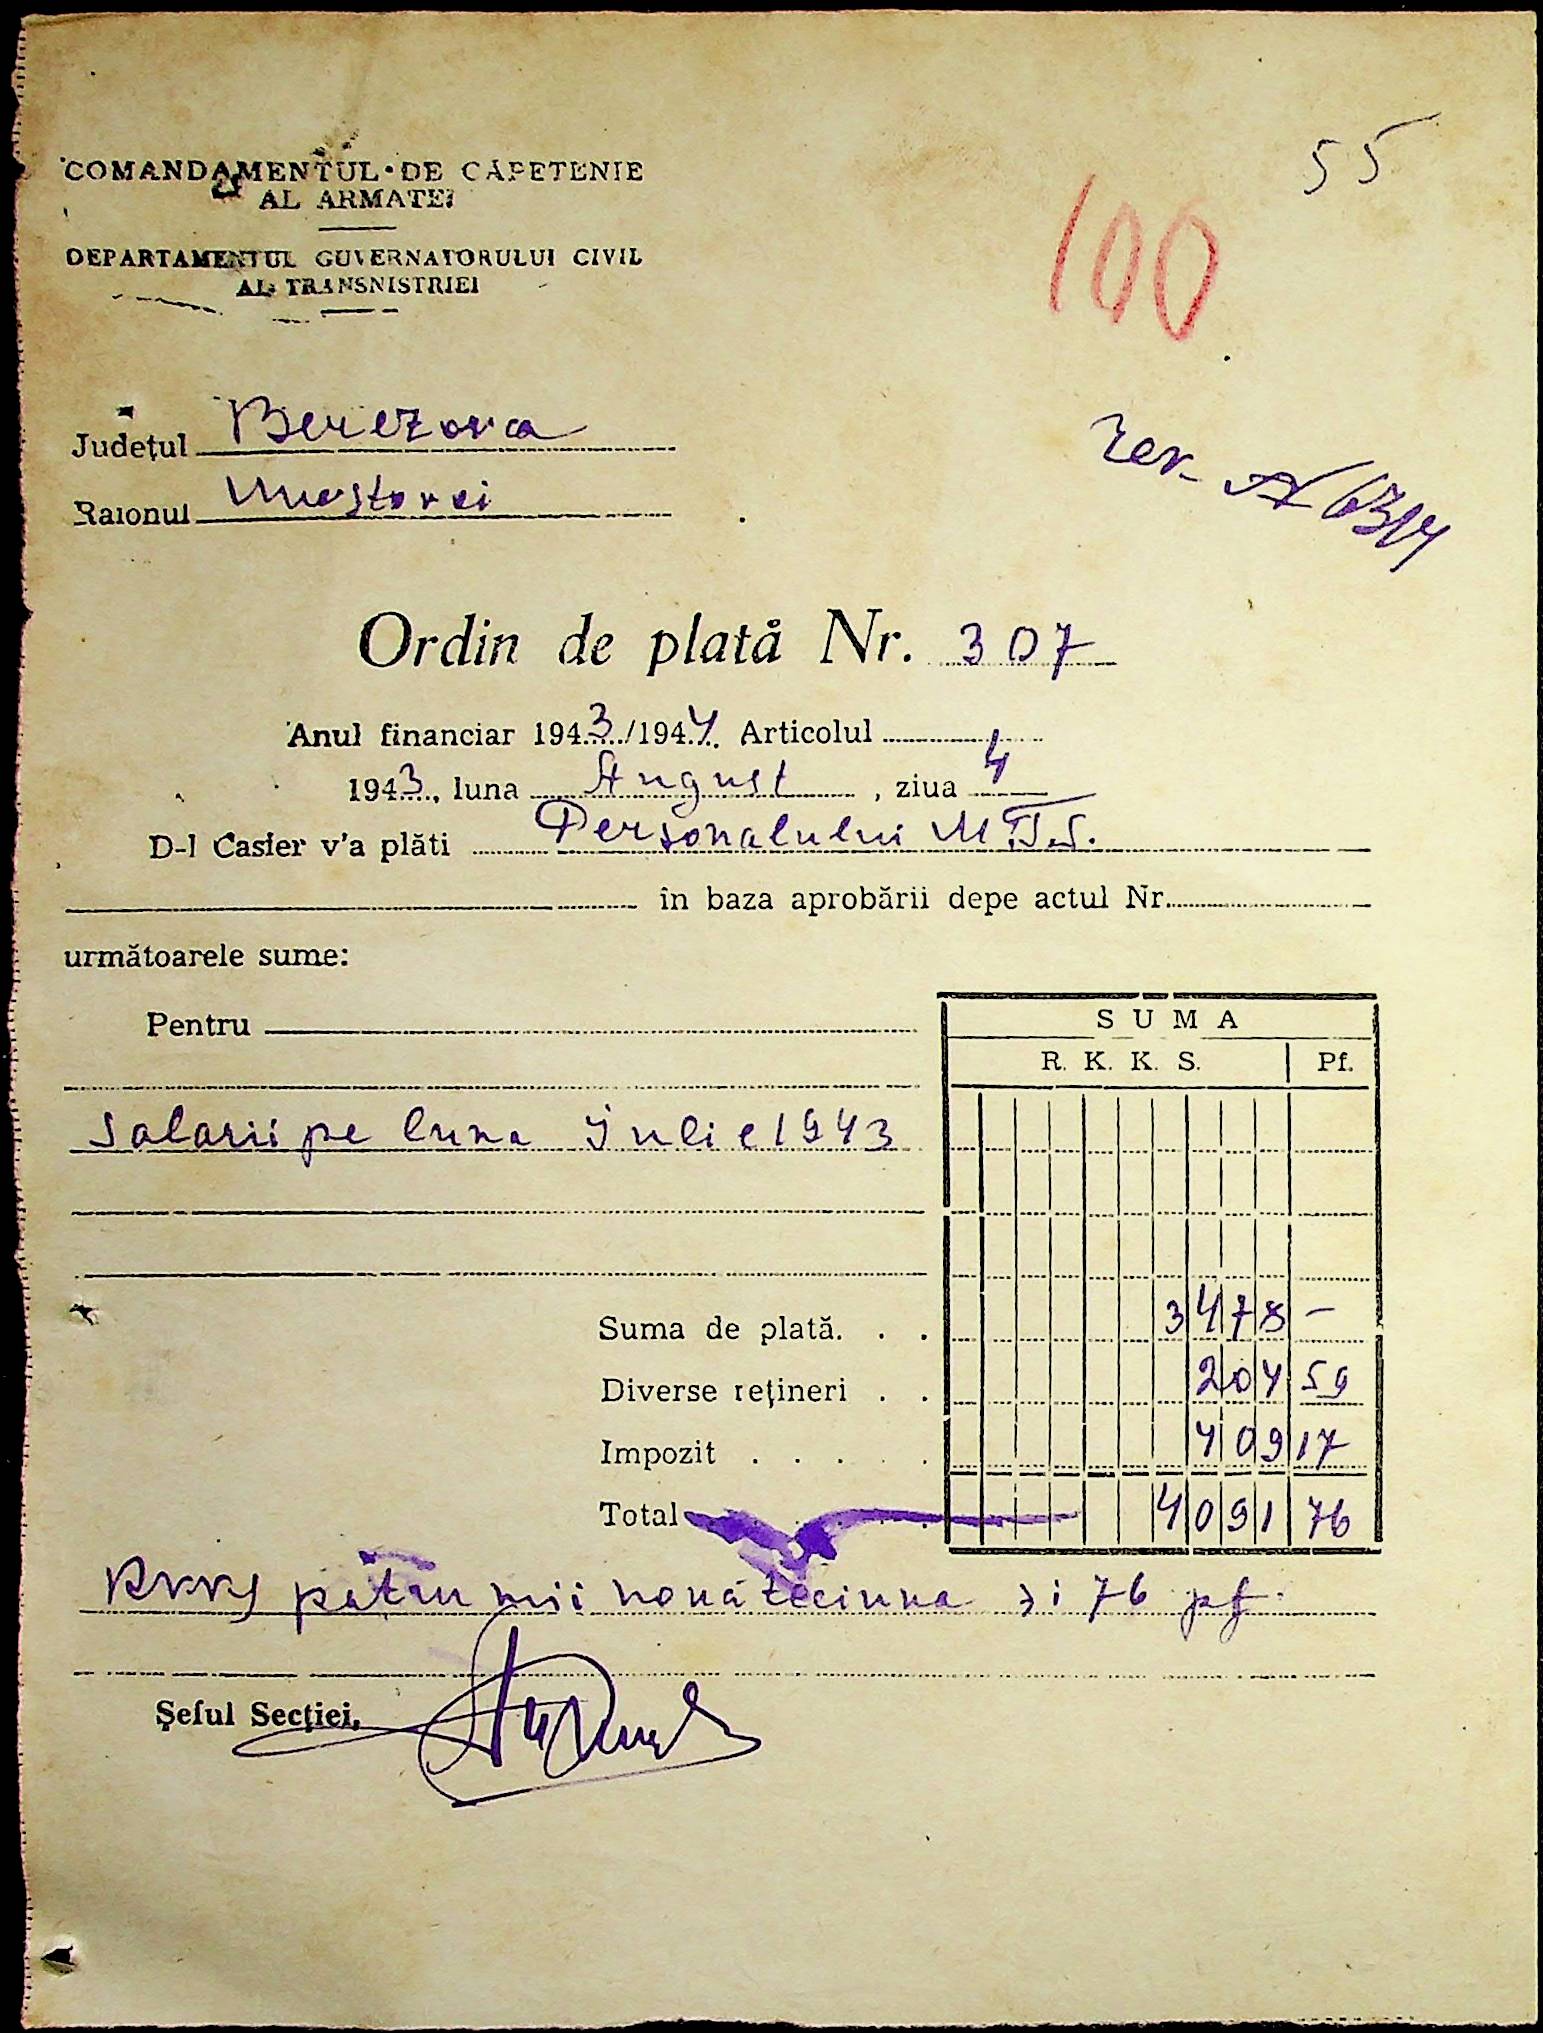 55
COMANDAMENTUL DE CĂPETENIE
AL ARMATEI
100
DEPARTAMENTUL GUVERNATORULUI CIVIL
AL TRANSNISTRIEI
Județul Berezovca
Raionul Mostovoi
Ordin de plată Nr. 307
Anul financiar 1943/1944 Articolul
1943, luna August, ziua 4
D-l Casier v'a plăti Personalului M.T.S.
în baza aprobării depe actul Nr.
următoarele sume:
Pentru
SUMA
R. K. K. S. Pf.
Salarii pe luna Iulie 1943
Suma de plată. . . 3478 —
Diverse rețineri . . 204 59
Impozit . . . . . 409 17
Total 4091 76
patru mii nouăzeciuna și 76 pf.
Șeful Secției,